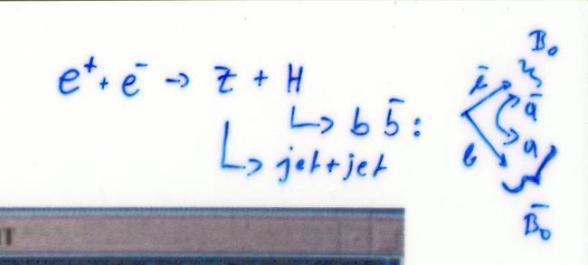 e⁺ + e⁻ → Z + H
↳ b b̄ :
↳ jet+jet
B₀
b̄
d̄
d
b
B̄₀